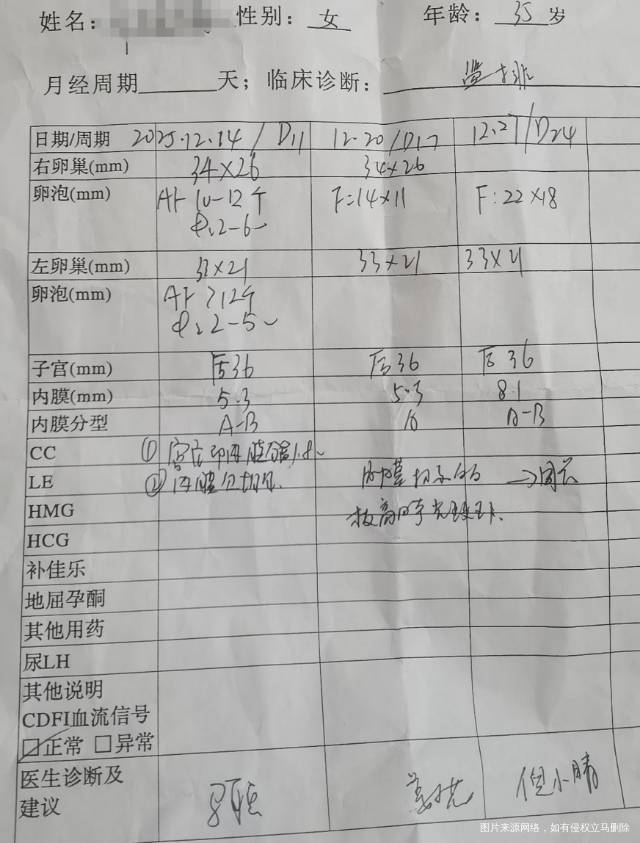 姓名： 性别：女 年龄：35岁
月经周期 天；临床诊断：
日期/周期 2025.12.14 / D11 12.20/D17 12.27/D24
右卵巢(mm) 34×26 34×26
卵泡(mm) AF 10-12个 F=14×11 F:22×18
2-6
左卵巢(mm) 33×21 33×21 33×21
卵泡(mm) AF >12个
2-5
子宫(mm) 后36 后36 后36
内膜(mm) 5.3 5.3 8.1
内膜分型 A-B A-B
CC ①
LE ②
HMG
HCG
补佳乐
地屈孕酮
其他用药
尿LH
其他说明
CDFI血流信号
正常 异常
医生诊断及
建议 倪小晴
图片来源网络，如有侵权立马删除